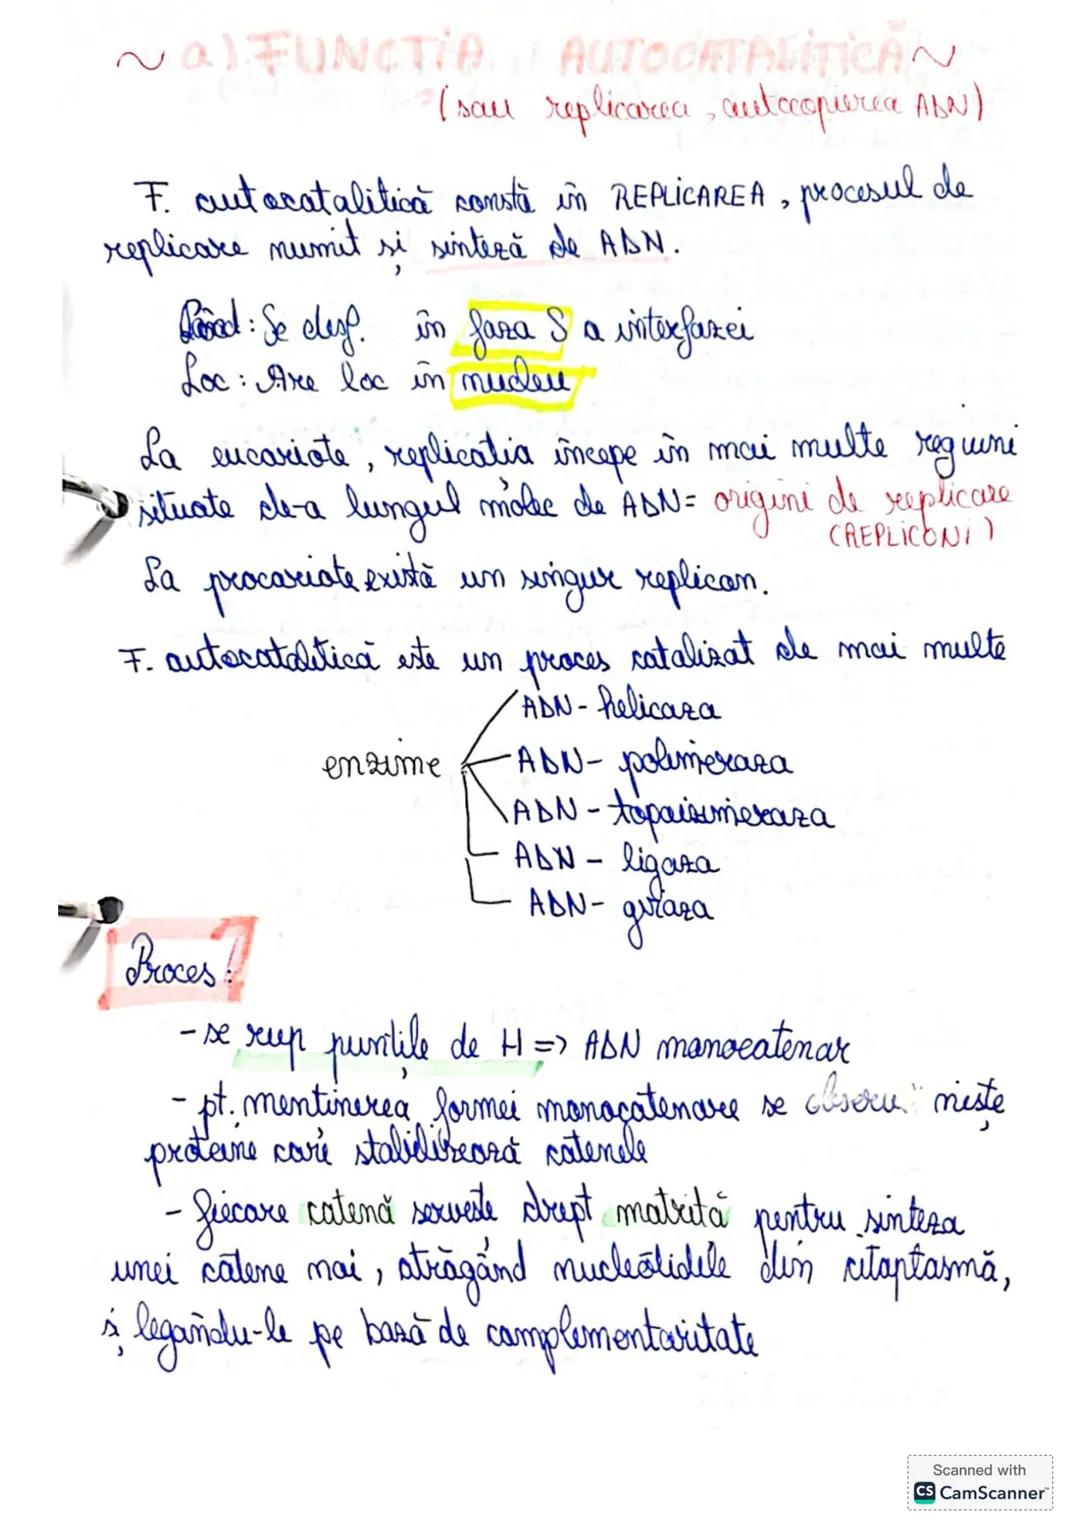 ~ a) FUNCȚIA AUTOCATALITICĂ ~
(sau replicarea, autocopierea ADN)
F. autocatalitică constă în REPLICAREA, procesul de
replicare numit și sinteză de ADN.
Când: Se desf. în faza S a interfazei
Loc: Are loc în nucleu
La eucariote, replicația începe în mai multe regiuni
situate de-a lungul molec de ADN = origini de replicare
(REPLICONI)
La procariote există un singur replicon.
F. autocatalitică este un proces catalizat de mai multe
ADN - helicaza
enzime
ADN - polimeraza
ADN - topoizomeraza
ADN - ligaza
ADN - giraza
Proces!
- se rup punțile de H => ADN monocatenar
- pt. menținerea formei monocatenare se niște
proteine care stabilizează catenele
- fiecare catenă servește drept matriță pentru sinteza
unei catene noi, atrăgând nucleotidele din citoplasmă,
și legându-le pe bază de complementaritate
Scanned with
CS CamScanner